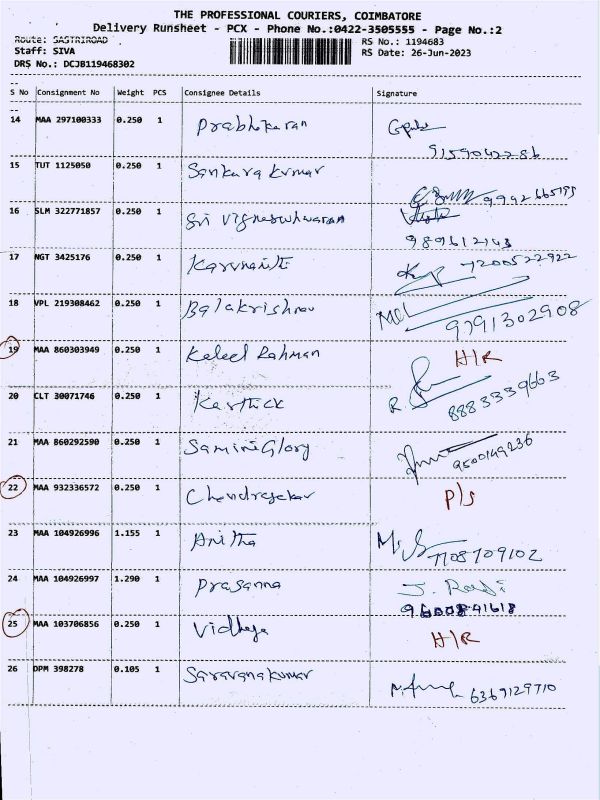 THE PROFESSIONAL COURIERS, COIMBATORE
Delivery Runsheet - PCX - Phone No.:0422-3505555 - Page No.:2
Route: SASTRIROAD RS No.: 1194683
Staff: SIVA RS Date: 26-Jun-2023
DRS No.: DCJB119468302
S No Consignment No Weight PCS Consignee Details Signature
14 MAA 297100333 0.250 1 Prabhakaran
9159042286
15 TUT 1125050 0.250 1 Sankara kumar
16 SLM 322771857 0.250 1 Sri Vigneswhwaran
989612143
17 NGT 3425176 0.250 1 7200522922
18 VPL 219308462 0.250 1 Balakrishnan
9791302908
19 MAA 860303949 0.250 1 Kaleel Rahman H/R
20 CLT 30071746 0.250 1 Karthick 8883339663
21 MAA 860292590 0.250 1 Samini Glory 9500149236
22 MAA 932336572 0.250 1 Chandrasekar P/S
23 MAA 104926996 1.155 1 Anitha 7708709102
24 MAA 104926997 1.290 1 Prasanna
9600841618
25 MAA 103706856 0.250 1 Vidhaya H/R
26 DPM 398278 0.105 1 Saravanakumar 6369129710